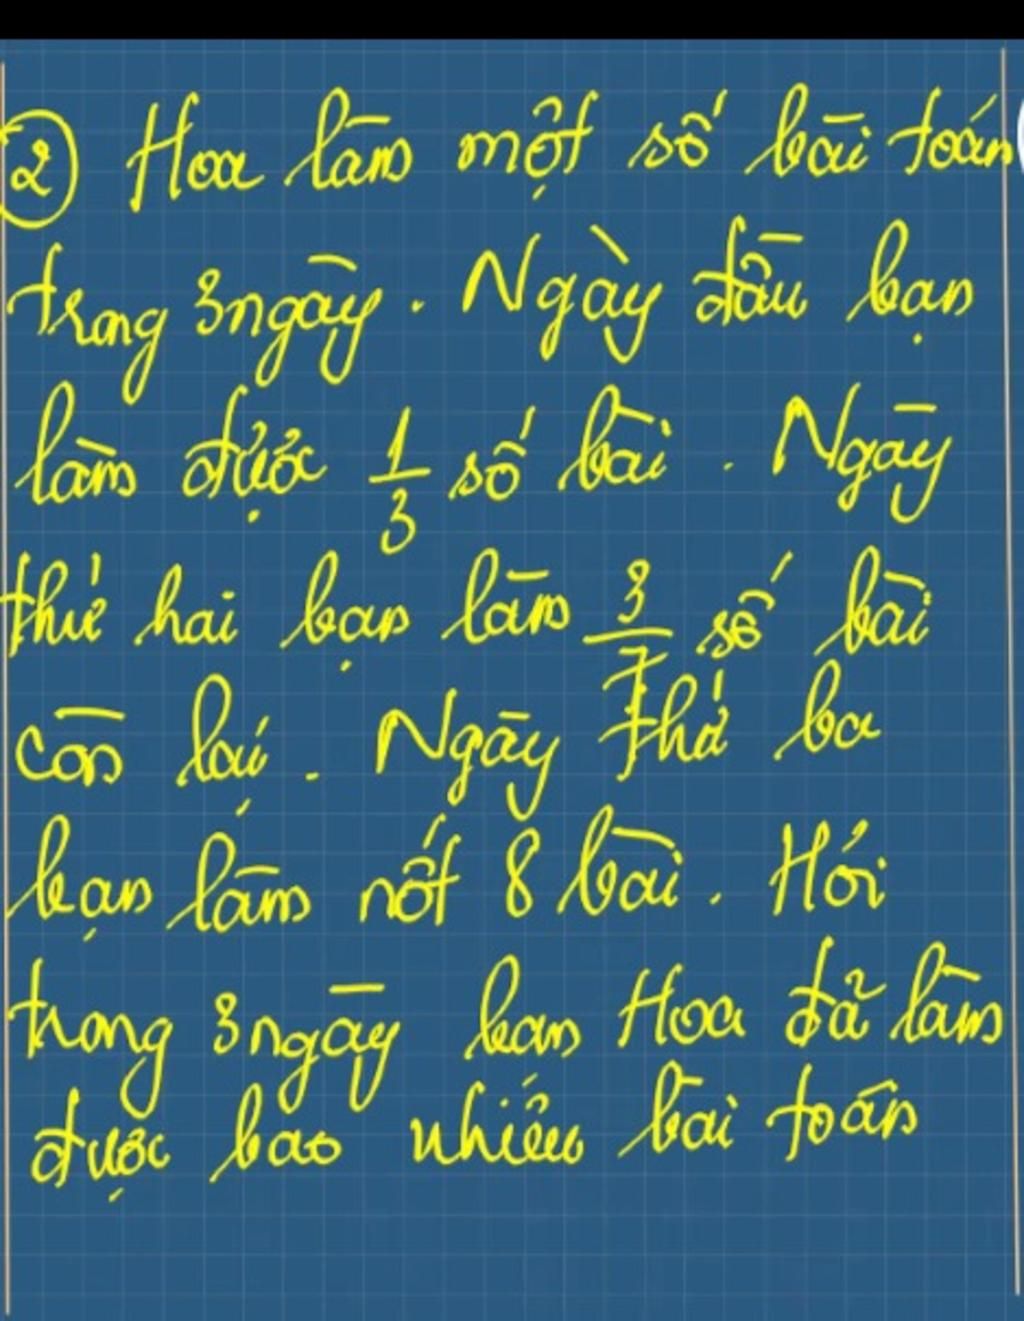 ② Hoa làm một số bài toán
trong 3 ngày. Ngày đầu bạn
làm được 1/3 số bài. Ngày
thứ hai bạn làm 3/7 số bài
còn lại. Ngày thứ ba
bạn làm nốt 8 bài. Hỏi
trong 3 ngày bạn Hoa đã làm
được bao nhiêu bài toán